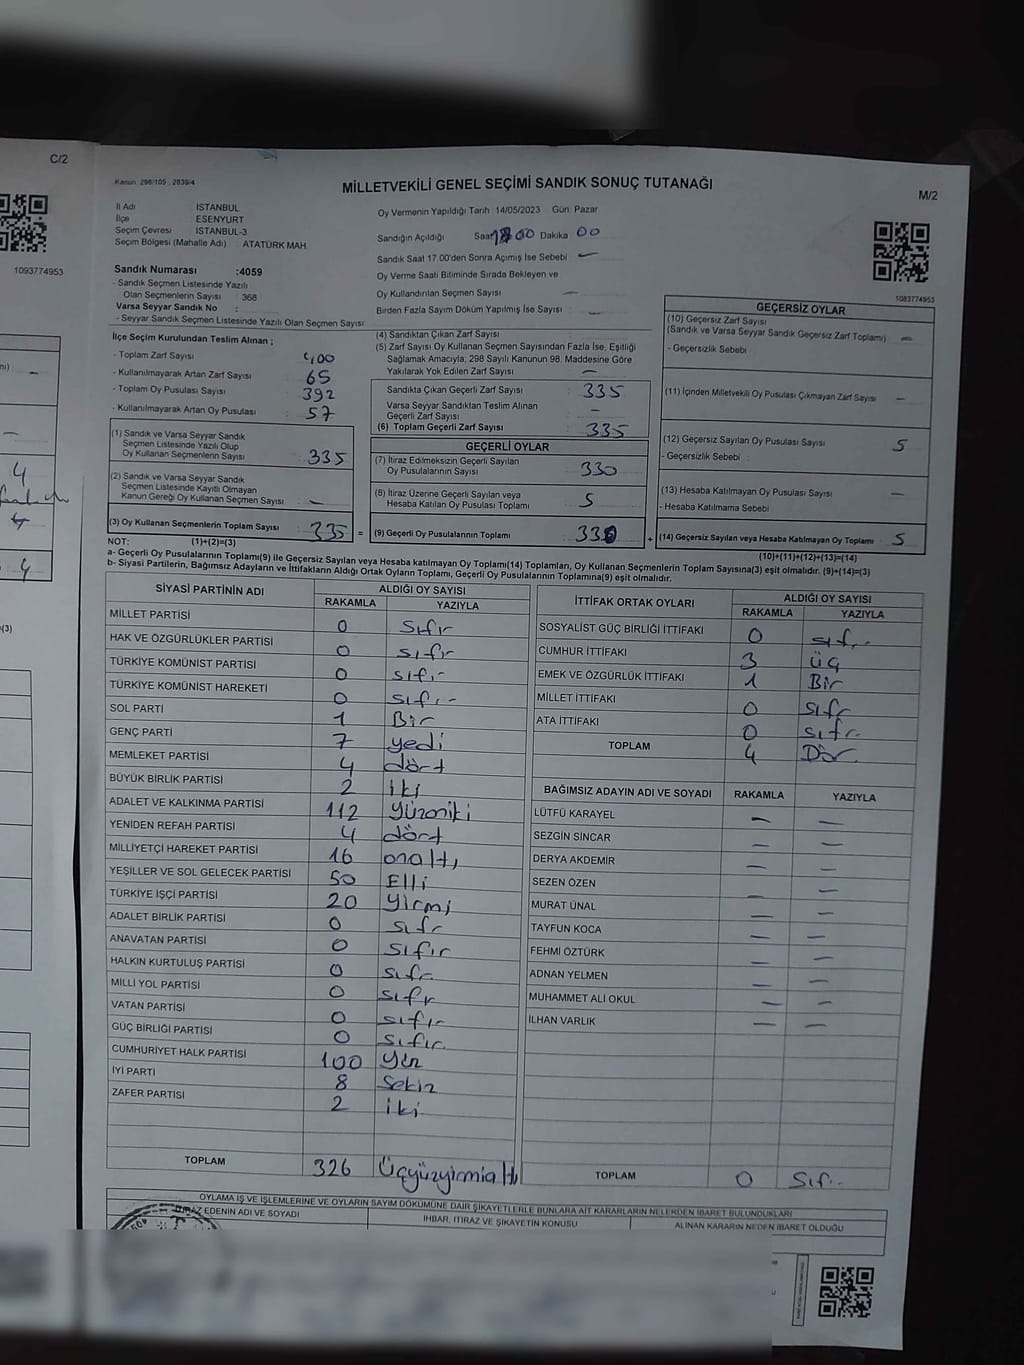 C/2
1093774953
Kanun: 298/105 , 2839/4
MİLLETVEKİLİ GENEL SEÇİMİ SANDIK SONUÇ TUTANAĞI
M/2
İl Adı İSTANBUL
İlçe ESENYURT
Seçim Çevresi İSTANBUL-3
Seçim Bölgesi (Mahalle Adı) ATATÜRK MAH.
Oy Vermenin Yapıldığı Tarih 14/05/2023 Gün: Pazar
Sandığın Açıldığı Saat Dakika 00
Sandık Saat 17.00'den Sonra Açımış İse Sebebi —
Oy Verme Saati Bitiminde Sırada Bekleyen ve
Oy Kullandırılan Seçmen Sayısı —
Birden Fazla Sayım Döküm Yapılmış İse Sayısı : —
1083774953
Sandık Numarası :4059
- Sandık Seçmen Listesinde Yazılı
Olan Seçmenlerin Sayısı : 368
Varsa Seyyar Sandık No :
- Seyyar Sandık Seçmen Listesinde Yazılı Olan Seçmen Sayısı:
İlçe Seçim Kurulundan Teslim Alınan ;
- Toplam Zarf Sayısı : 400
- Kullanılmayarak Artan Zarf Sayısı : 65
- Toplam Oy Pusulası Sayısı : 392
- Kullanılmayarak Artan Oy Pusulası : 57
(1) Sandık ve Varsa Seyyar Sandık
Seçmen Listesinde Yazılı Olup
Oy Kullanan Seçmenlerin Sayısı : 335
(2) Sandık ve Varsa Seyyar Sandık
Seçmen Listesinde Kayıtlı Olmayan
Kanun Gereği Oy Kullanan Seçmen Sayısı : —
(3) Oy Kullanan Seçmenlerin Toplam Sayısı : 335 =
(4) Sandıktan Çıkan Zarf Sayısı :
(5) Zarf Sayısı Oy Kullanan Seçmen Sayısından Fazla İse, Eşitliği
Sağlamak Amacıyla; 298 Sayılı Kanunun 98. Maddesine Göre
Yakılarak Yok Edilen Zarf Sayısı : —
Sandıkta Çıkan Geçerli Zarf Sayısı : 335
Varsa Seyyar Sandıktan Teslim Alınan
Geçerli Zarf Sayısı : —
(6) Toplam Geçerli Zarf Sayısı : 335
GEÇERLİ OYLAR
(7) İtiraz Edilmeksizin Geçerli Sayılan
Oy Pusulalarının Sayısı : 330
(8) İtiraz Üzerine Geçerli Sayılan veya
Hesaba Katılan Oy Pusulası Toplamı : 5
(9) Geçerli Oy Pusulalarının Toplamı : 330 +
GEÇERSİZ OYLAR
(10) Geçersiz Zarf Sayısı
(Sandık ve Varsa Seyyar Sandık Geçersiz Zarf Toplamı) : —
- Geçersizlik Sebebi
(11) İçinden Milletvekili Oy Pusulası Çıkmayan Zarf Sayısı : —
(12) Geçersiz Sayılan Oy Pusulası Sayısı : 5
- Geçersizlik Sebebi :
(13) Hesaba Katılmayan Oy Pusulası Sayısı : —
- Hesaba Katılmama Sebebi
(14) Geçersiz Sayılan veya Hesaba Katılmayan Oy Toplamı : 5
NOT: (1)+(2)=(3)
(10)+(11)+(12)+(13)=(14)
a- Geçerli Oy Pusulalarının Toplamı(9) ile Geçersiz Sayılan veya Hesaba katılmayan Oy Toplamı(14) Toplamları, Oy Kullanan Seçmenlerin Toplam Sayısına(3) eşit olmalıdır. (9)+(14)=(3)
b- Siyasi Partilerin, Bağımsız Adayların ve İttifakların Aldığı Ortak Oyların Toplamı, Geçerli Oy Pusulalarının Toplamına(9) eşit olmalıdır.
SİYASİ PARTİNİN ADI ALDIĞI OY SAYISI
RAKAMLA YAZIYLA
MİLLET PARTİSİ 0 Sıfır
HAK VE ÖZGÜRLÜKLER PARTİSİ 0 sıfır
TÜRKİYE KOMÜNİST PARTİSİ 0 sıfır
TÜRKİYE KOMÜNİST HAREKETİ 0 sıfır
SOL PARTİ 1 Bir
GENÇ PARTİ 7 yedi
MEMLEKET PARTİSİ 4 dört
BÜYÜK BİRLİK PARTİSİ 2 iki
ADALET VE KALKINMA PARTİSİ 112 Yüzoniki
YENİDEN REFAH PARTİSİ 4 dört
MİLLİYETÇİ HAREKET PARTİSİ 16 onaltı
YEŞİLLER VE SOL GELECEK PARTİSİ 50 Elli
TÜRKİYE İŞÇİ PARTİSİ 20 Yirmi
ADALET BİRLİK PARTİSİ 0 sıfr
ANAVATAN PARTİSİ 0 sıfır
HALKIN KURTULUŞ PARTİSİ 0 sıfr
MİLLİ YOL PARTİSİ 0 sıfır
VATAN PARTİSİ 0 sıfır
GÜÇ BİRLİĞİ PARTİSİ 0 sıfır
CUMHURİYET HALK PARTİSİ 100 Yüz
İYİ PARTİ 8 Sekiz
ZAFER PARTİSİ 2 iki
TOPLAM 326 Üçyüzyirmialtı
İTTİFAK ORTAK OYLARI ALDIĞI OY SAYISI
RAKAMLA YAZIYLA
SOSYALİST GÜÇ BİRLİĞİ İTTİFAKI 0 sıfır
CUMHUR İTTİFAKI 3 üç
EMEK VE ÖZGÜRLÜK İTTİFAKI 1 Bir
MİLLET İTTİFAKI 0 sıfır
ATA İTTİFAKI 0 sıfır
TOPLAM 4 Dör
BAĞIMSIZ ADAYIN ADI VE SOYADI RAKAMLA YAZIYLA
LÜTFÜ KARAYEL — —
SEZGİN SİNCAR — —
DERYA AKDEMİR — —
SEZEN ÖZEN — —
MURAT ÜNAL — —
TAYFUN KOCA — —
FEHMİ ÖZTÜRK — —
ADNAN YELMEN — —
MUHAMMET ALİ OKUL — —
İLHAN VARLIK — —
TOPLAM 0 Sıfır
OYLAMA İŞ VE İŞLEMLERİNE VE OYLARIN SAYIM DÖKÜMÜNE DAİR ŞİKAYETLERLE BUNLARA AİT KARARLARIN NELERDEN İBARET BULUNDUKLARI
İTİRAZ EDENİN ADI VE SOYADI İHBAR, İTİRAZ VE ŞİKAYETİN KONUSU ALINAN KARARIN NEDEN İBARET OLDUĞU